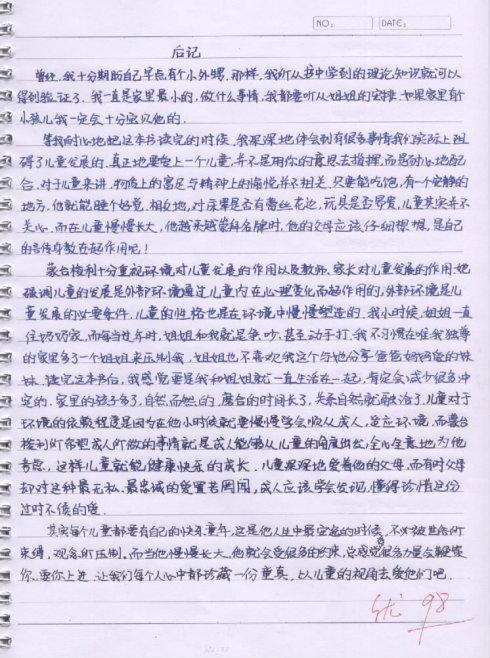 NO: DATE:
后记
曾经,我十分期盼自己早点有个小外甥,那样,我所从书中学到的理论知识就可以
得到验证了。我一直是家里最小的,做什么事情,我都要听从姐姐的安排,如果家里有个
小孩儿我一定会十分宠他的。
等我耐心地把这本书读完的时候,我深深地体会到有很多事情我们实际上阻
碍了儿童发展的。真正地要爱上一个儿童,并不是用你的意愿去指挥,而是耐心地配
合。对于儿童来讲,物质上的富足与精神上的愉悦并不相关,只要能吃饱,有一个安静的
地方,他就能睡个好觉,相反地,对床单是否有蕾丝花边,玩具是否昂贵,儿童其实并不
关心,而在儿童慢慢长大,他越来越崇拜名牌时,他的父母应该仔细想想,是自己
的言传身教在起作用呢!
蒙台梭利十分重视环境对儿童发展的作用以及教师、家长对儿童发展的作用,她
强调儿童的发展是外部环境通过儿童内在心理变化而起作用的,外部环境是儿
童发展的必要条件。儿童的性格也是在环境中慢慢塑造的,我小时候,姐姐一直
住奶奶家,而每当过年时,姐姐和我就是争、吵,甚至动手打,我不习惯在唯我独尊
的家里多了一个姐姐来压制我,姐姐也不喜欢我这个与她分享爸爸妈妈爱的妹
妹。读完这本书后,我感觉要是我和姐姐就一直生活在一起,肯定会减少很多冲
突的。家里的孩子多了,自然而然的,磨合的时间长了,关系自然就融洽了,儿童对于
环境的依赖程度是因为在他小时候就要慢慢学会顺从成人,适应环境,而蒙台
梭利所希望成人所做的事情就是成人能够从儿童的角度出发,全心全意地为他
考虑,这样儿童就能健康快乐的成长。儿童深深地爱着他的父母,而有时父母
却对这种最无私、最忠诚的爱置若罔闻,成人应该学会发现,懂得珍惜这份
过时不候的爱。
其实每个儿童都要有自己的快乐童年,这是他人生中最宝贵的时候,不必被世俗所
束缚,观念所压制,而当他慢慢长大,他就会受很多的约束,总感觉很多力量会鞭策
你,要你上进,让我们每个人心中都珍藏一份童真,以儿童的视角去爱他们吧。
优 98